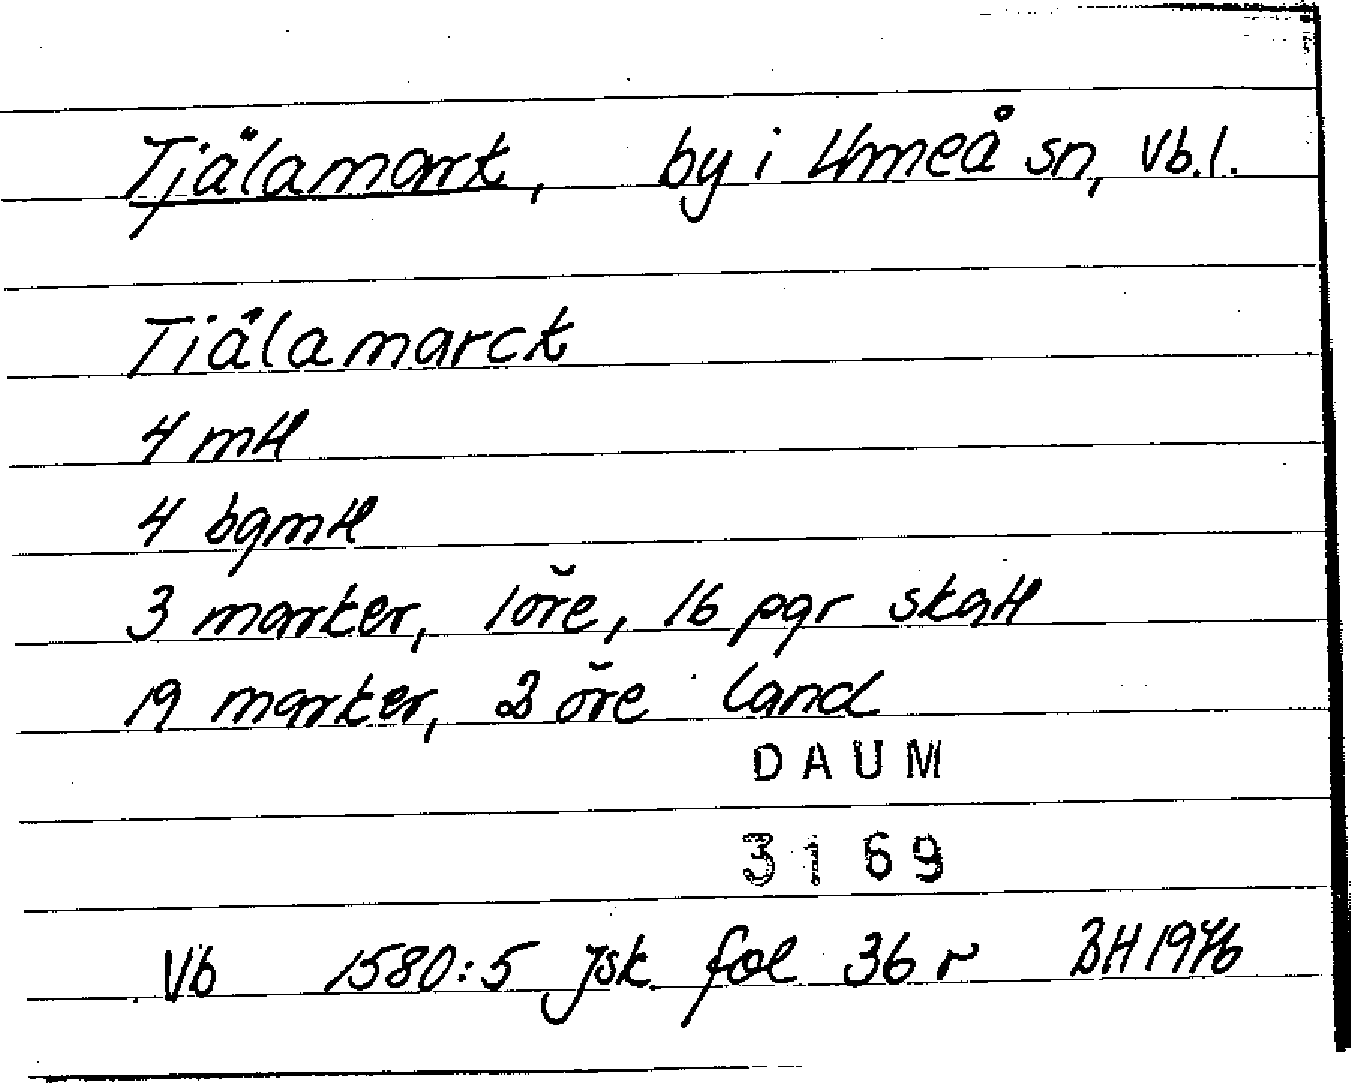 Tjälamark, by i Umeå sn, Vb.l.
Tiälamarck
4 mtl
4 bgmtl
3 marker, 1 öre, 16 pgr skatt
19 marker, 2 öre land
DAUM
3169
Vb 1580:5 Jsk fol 36 r BH 1976